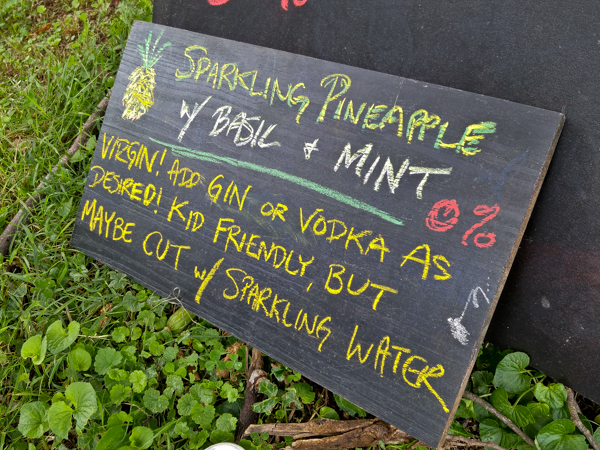 SPARKLING PINEAPPLE
w/ BASIL & MINT
0%
VIRGIN! ADD GIN OR VODKA AS
DESIRED! KID FRIENDLY, BUT
MAYBE CUT w/ SPARKLING WATER